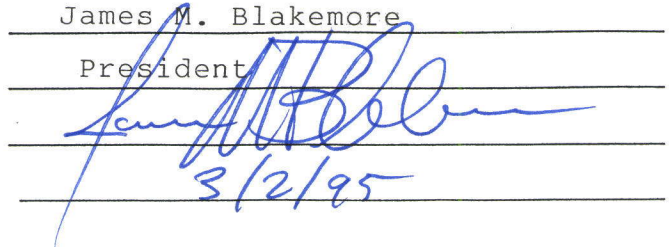 James M. Blakemore
President
3/2/95